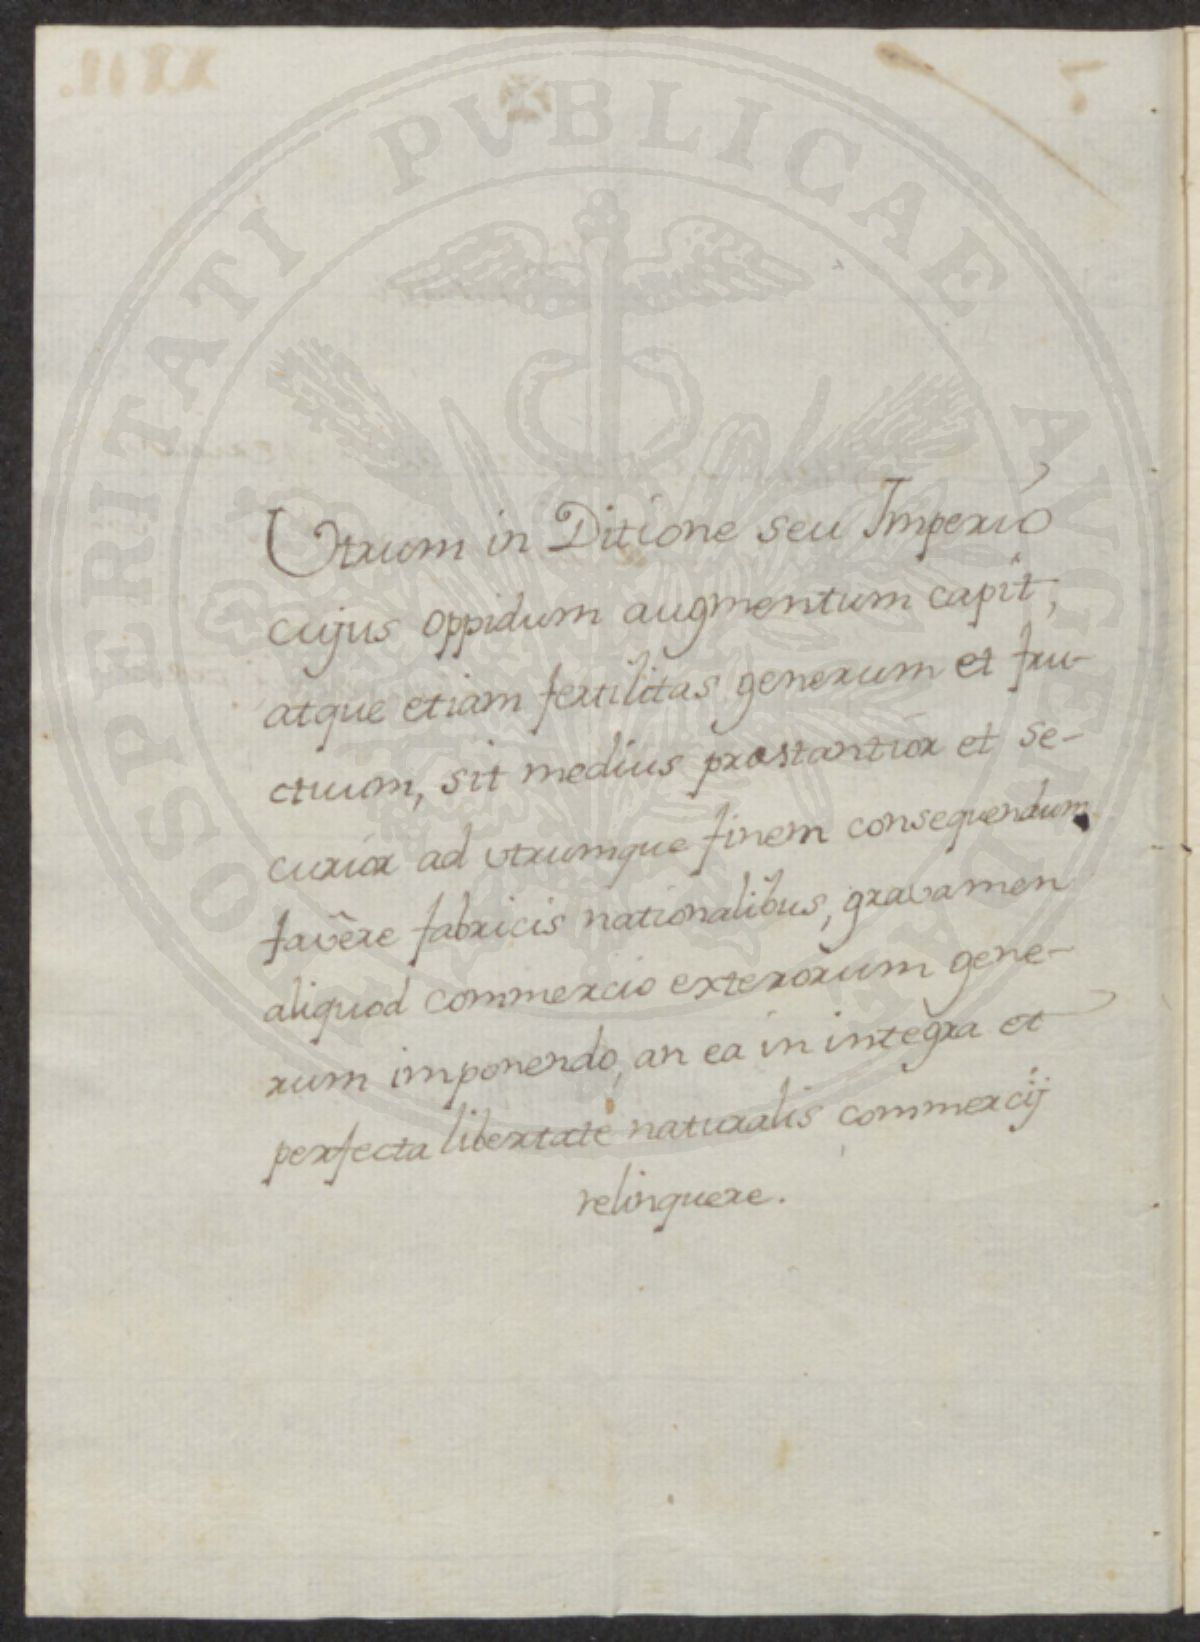 Utrum in Ditione seu Imperio
cujus oppidum augmentum capit,
atque etiam fertilitas generum et fru-
ctuum, sit medius prestantiór et se-
curiór ad vtrumque finem consequendum
favêre fabricis nationalibus, gravamen
aliquod commercio exterorum gene-
rum imponendo, an ea in integra et
perfecta libertate naturalis commercij
relinquere.
PROSPERITATI PVBLICAE AVGENDAE